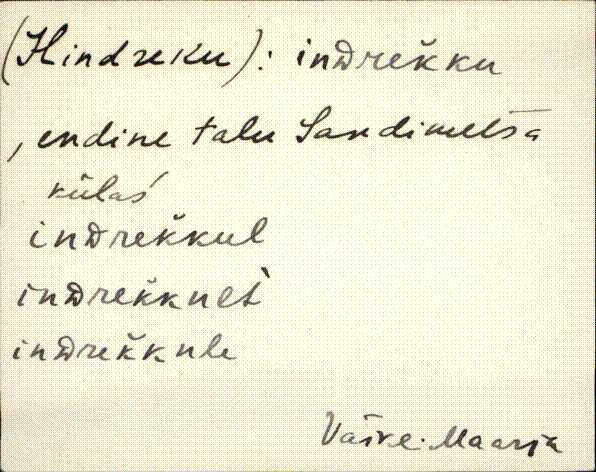 (Hindreku): inᴅrek̆ku
, endine talu Sandimetsa
külas
inᴅrek̆kul
inᴅrek̆kuĺt
inᴅrek̆kule
Väike-Maarja